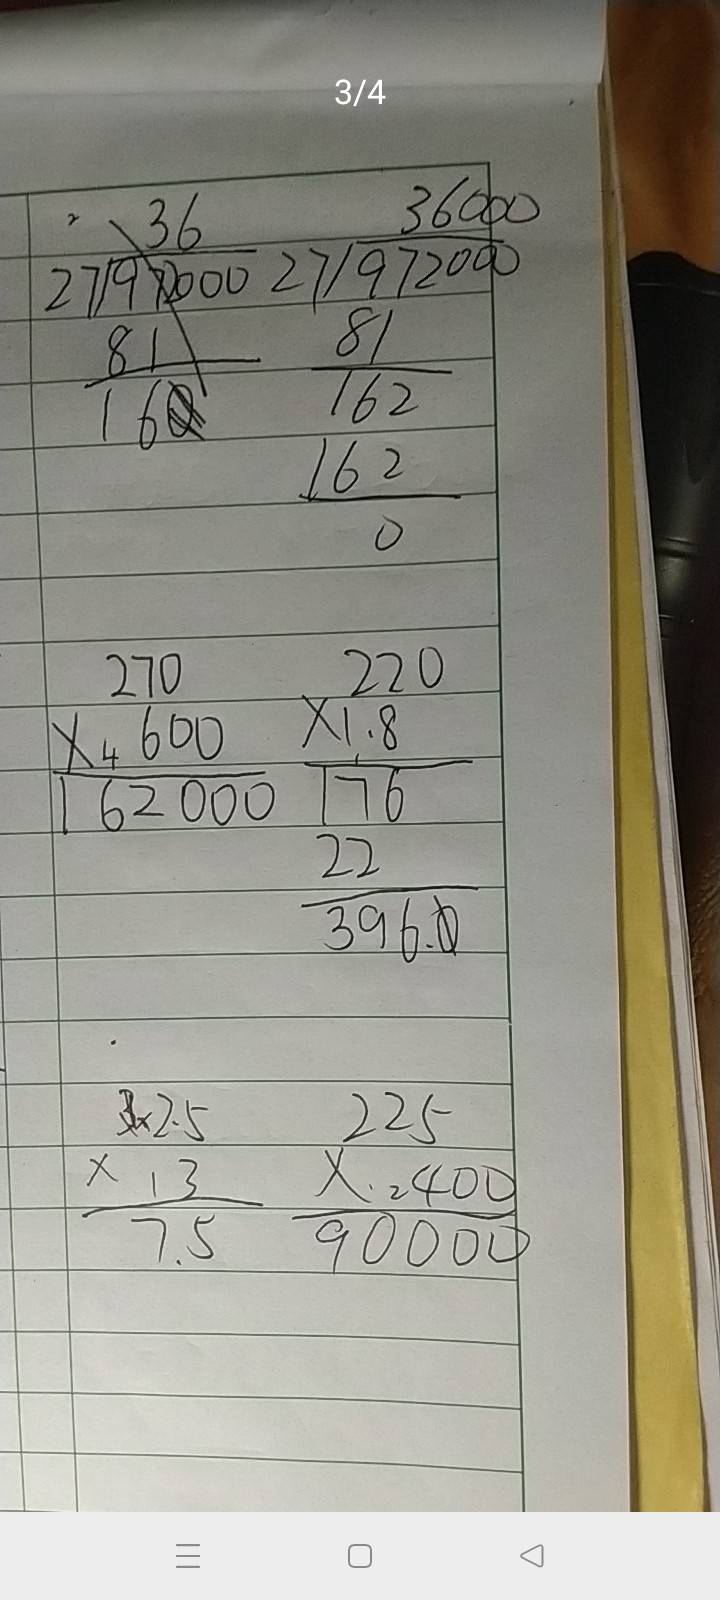 3/4
36 36000
27/972000 27/972000
81 81
160 162
162
0
270 220
×4 600 ×1.8
162000 176
22
396.0
2.5 225
× 13 ×2400
7.5 90000